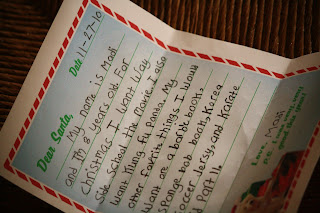 Date 11-27-10
Dear Santa,
My name is Madi
and I'm 8 years old. For
Christmas I want Way
Side School the movie. I also
want Kung fu panda. My
other favorite things I would
Want are a barbie books
sponge bob books, Korea
soccer Jersy, and Karate
Part 11
Love, Madi